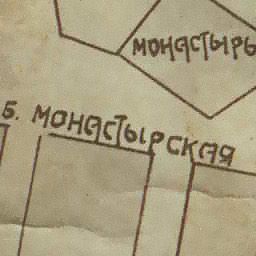 МОНАСТЫРЬ
Б. МОНАСТЫРСКАЯ